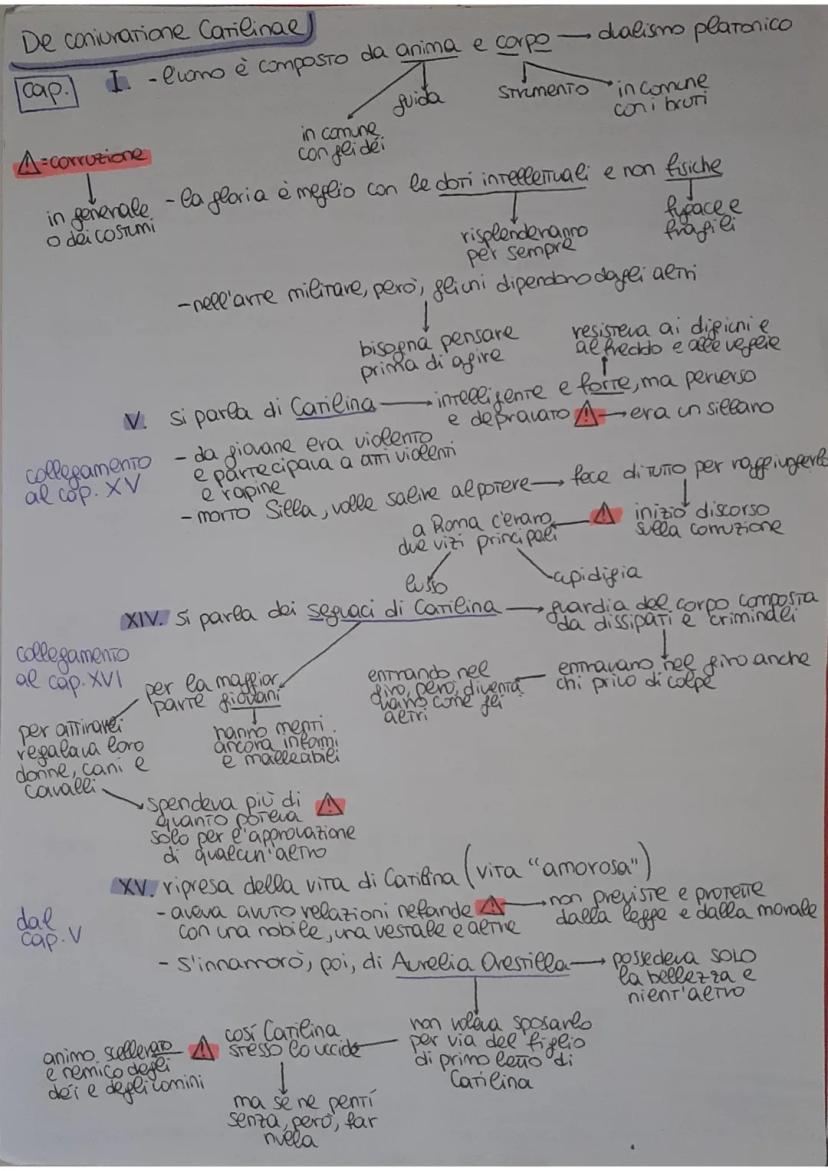 De coniuratione Catilinae
cap. I. - l'uomo è composto da anima e corpo → dualismo platonico
guida
strumento
in comune
con i bruti
in comune
con gli dei
⚠=corruzione
in generale
o dei costumi
- la gloria è meglio con le doti intellettuali e non fisiche
risplenderanno
per sempre
fugace e
fragili
- nell'arte militare, però, gli uni dipendono dagli altri
bisogna pensare
prima di agire
resisteva ai digiuni e
al freddo e alle veglie
V. si parla di Catilina → intelligente e forte, ma perverso
e depravato ⚠ → era un sillano
collegamento
al cap. XV
- da giovane era violento
e partecipava a atti violenti
e rapine
- morto Silla, volle salire al potere → fece di tutto per raggiungerlo
⚠ inizio discorso
sulla corruzione
a Roma c'erano
due vizi principali
lusso
cupidigia
XIV. si parla dei seguaci di Catilina → guardia del corpo composta
da dissipati e criminali
collegamento
al cap. XVI
entravano nel giro anche
chi privo di colpe
entrando nel
giro, però, diventa
vano come gli
altri
per la maggior
parte giovani
hanno menti
ancora informi
e malleabili
per attirarli
regalava loro
donne, cani e
cavalli
spendeva più di ⚠
quanto poteva
solo per l'approvazione
di qualcun'altro
XV. ripresa della vita di Catilina (vita "amorosa")
dal
cap. V
- aveva avuto relazioni nefande ⚠ → non previste e protette
con una nobile, una vestale e altre
dalla legge e dalla morale
- s'innamorò, poi, di Aurelia Orestilla → possedeva solo
la bellezza e
nient'altro
non voleva sposarlo
per via del figlio
di primo letto di
Catilina
così Catilina
stesso lo uccide
⚠ animo scellerato
e nemico degli
dei e degli uomini
ma se ne pentì
senza, però, far
nulla